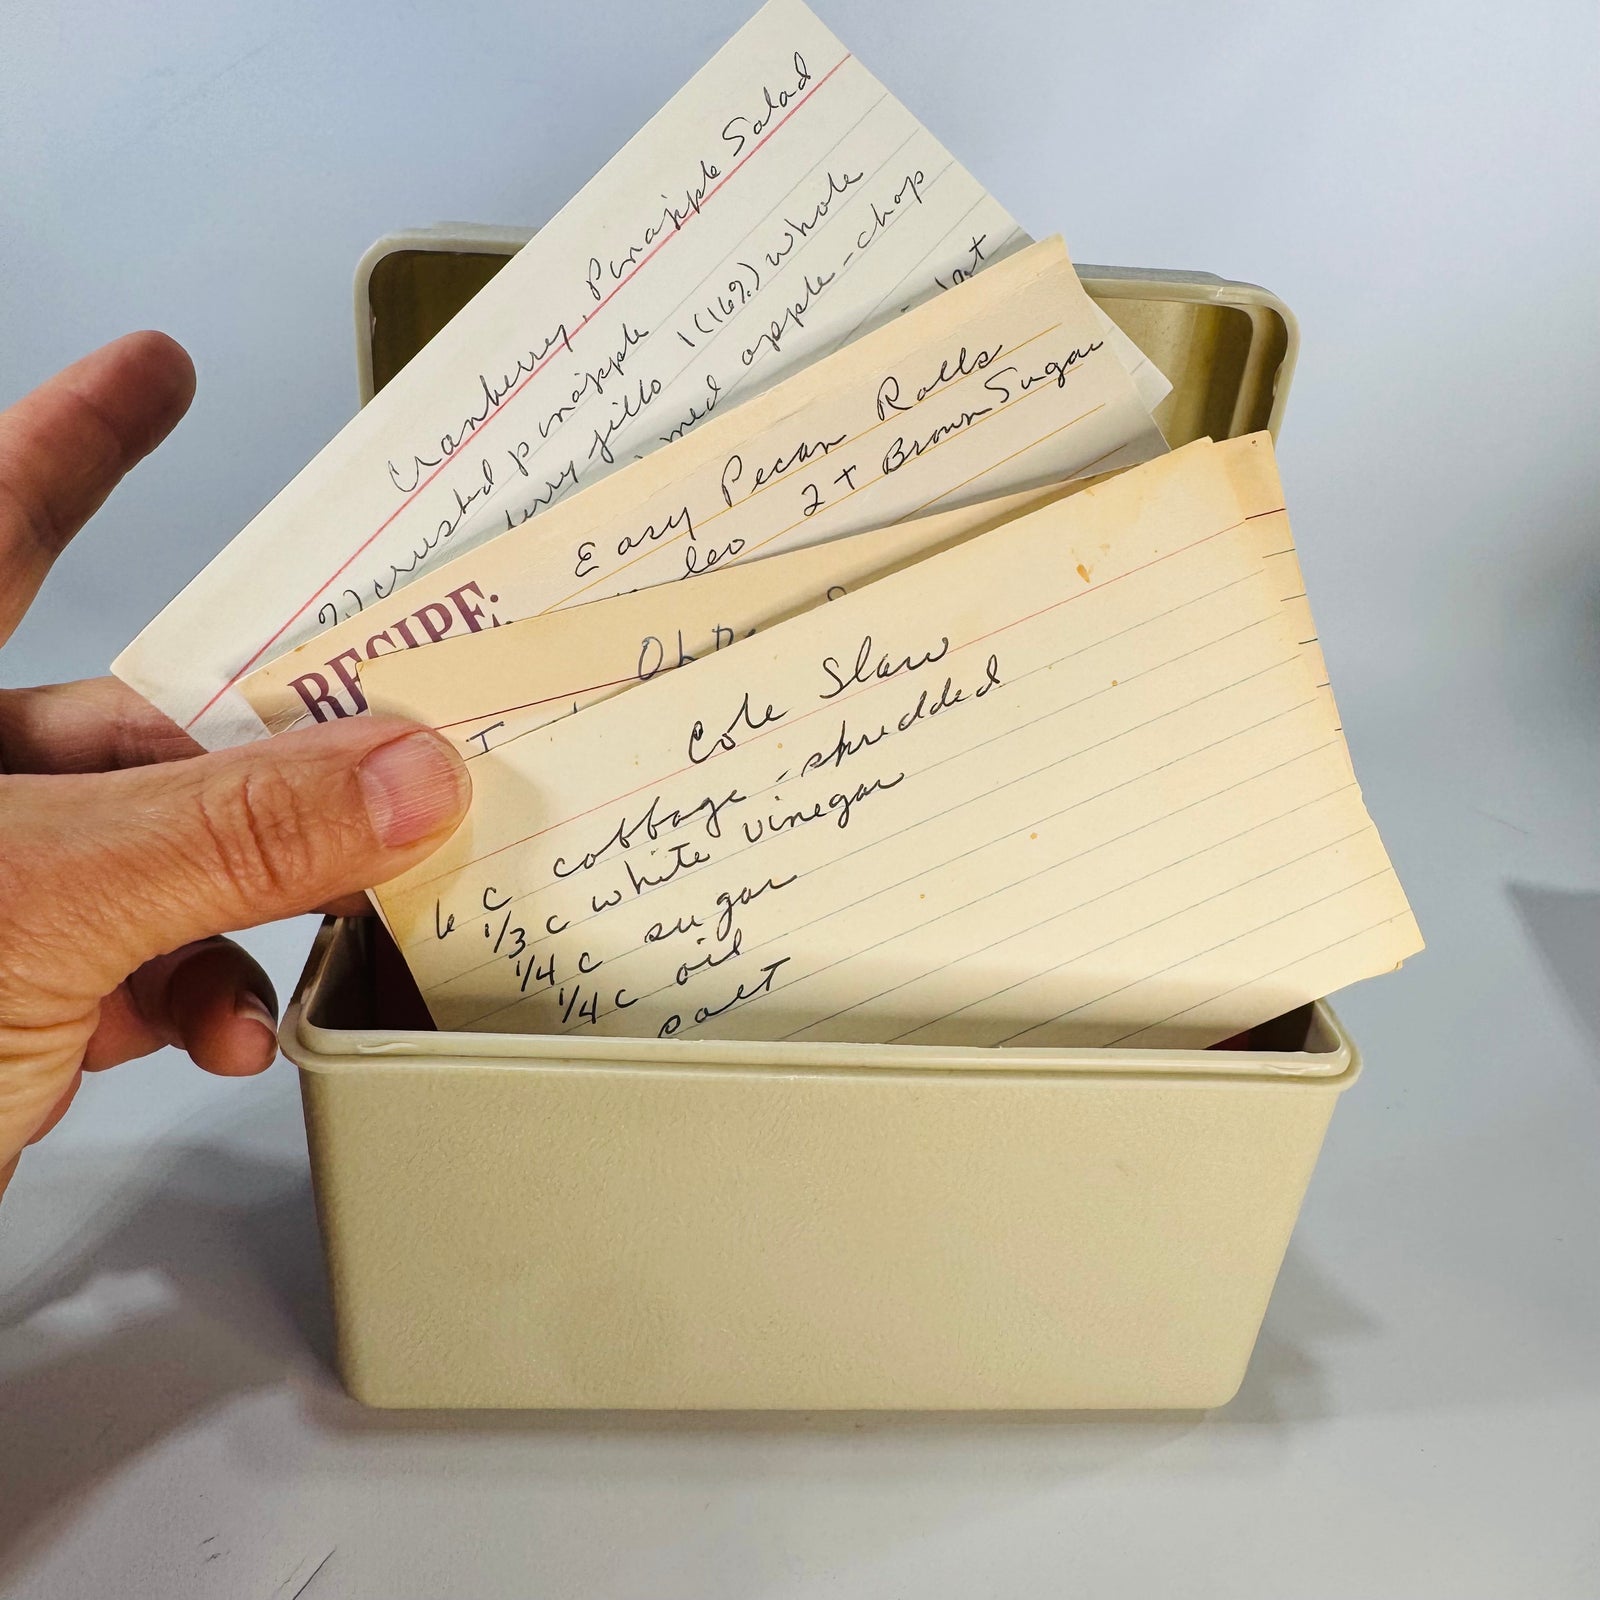 Cranberry, Pinapple Salad
crusted pinapple 1 (16 oz) whole
jillo apple - chop
RECIPE: Easy Pecan Rolls
2 T Brown Sugar
Cole Slaw
6 c cabbage - shredded
1/3 c white vinegar
1/4 c sugar
1/4 c oil
salt